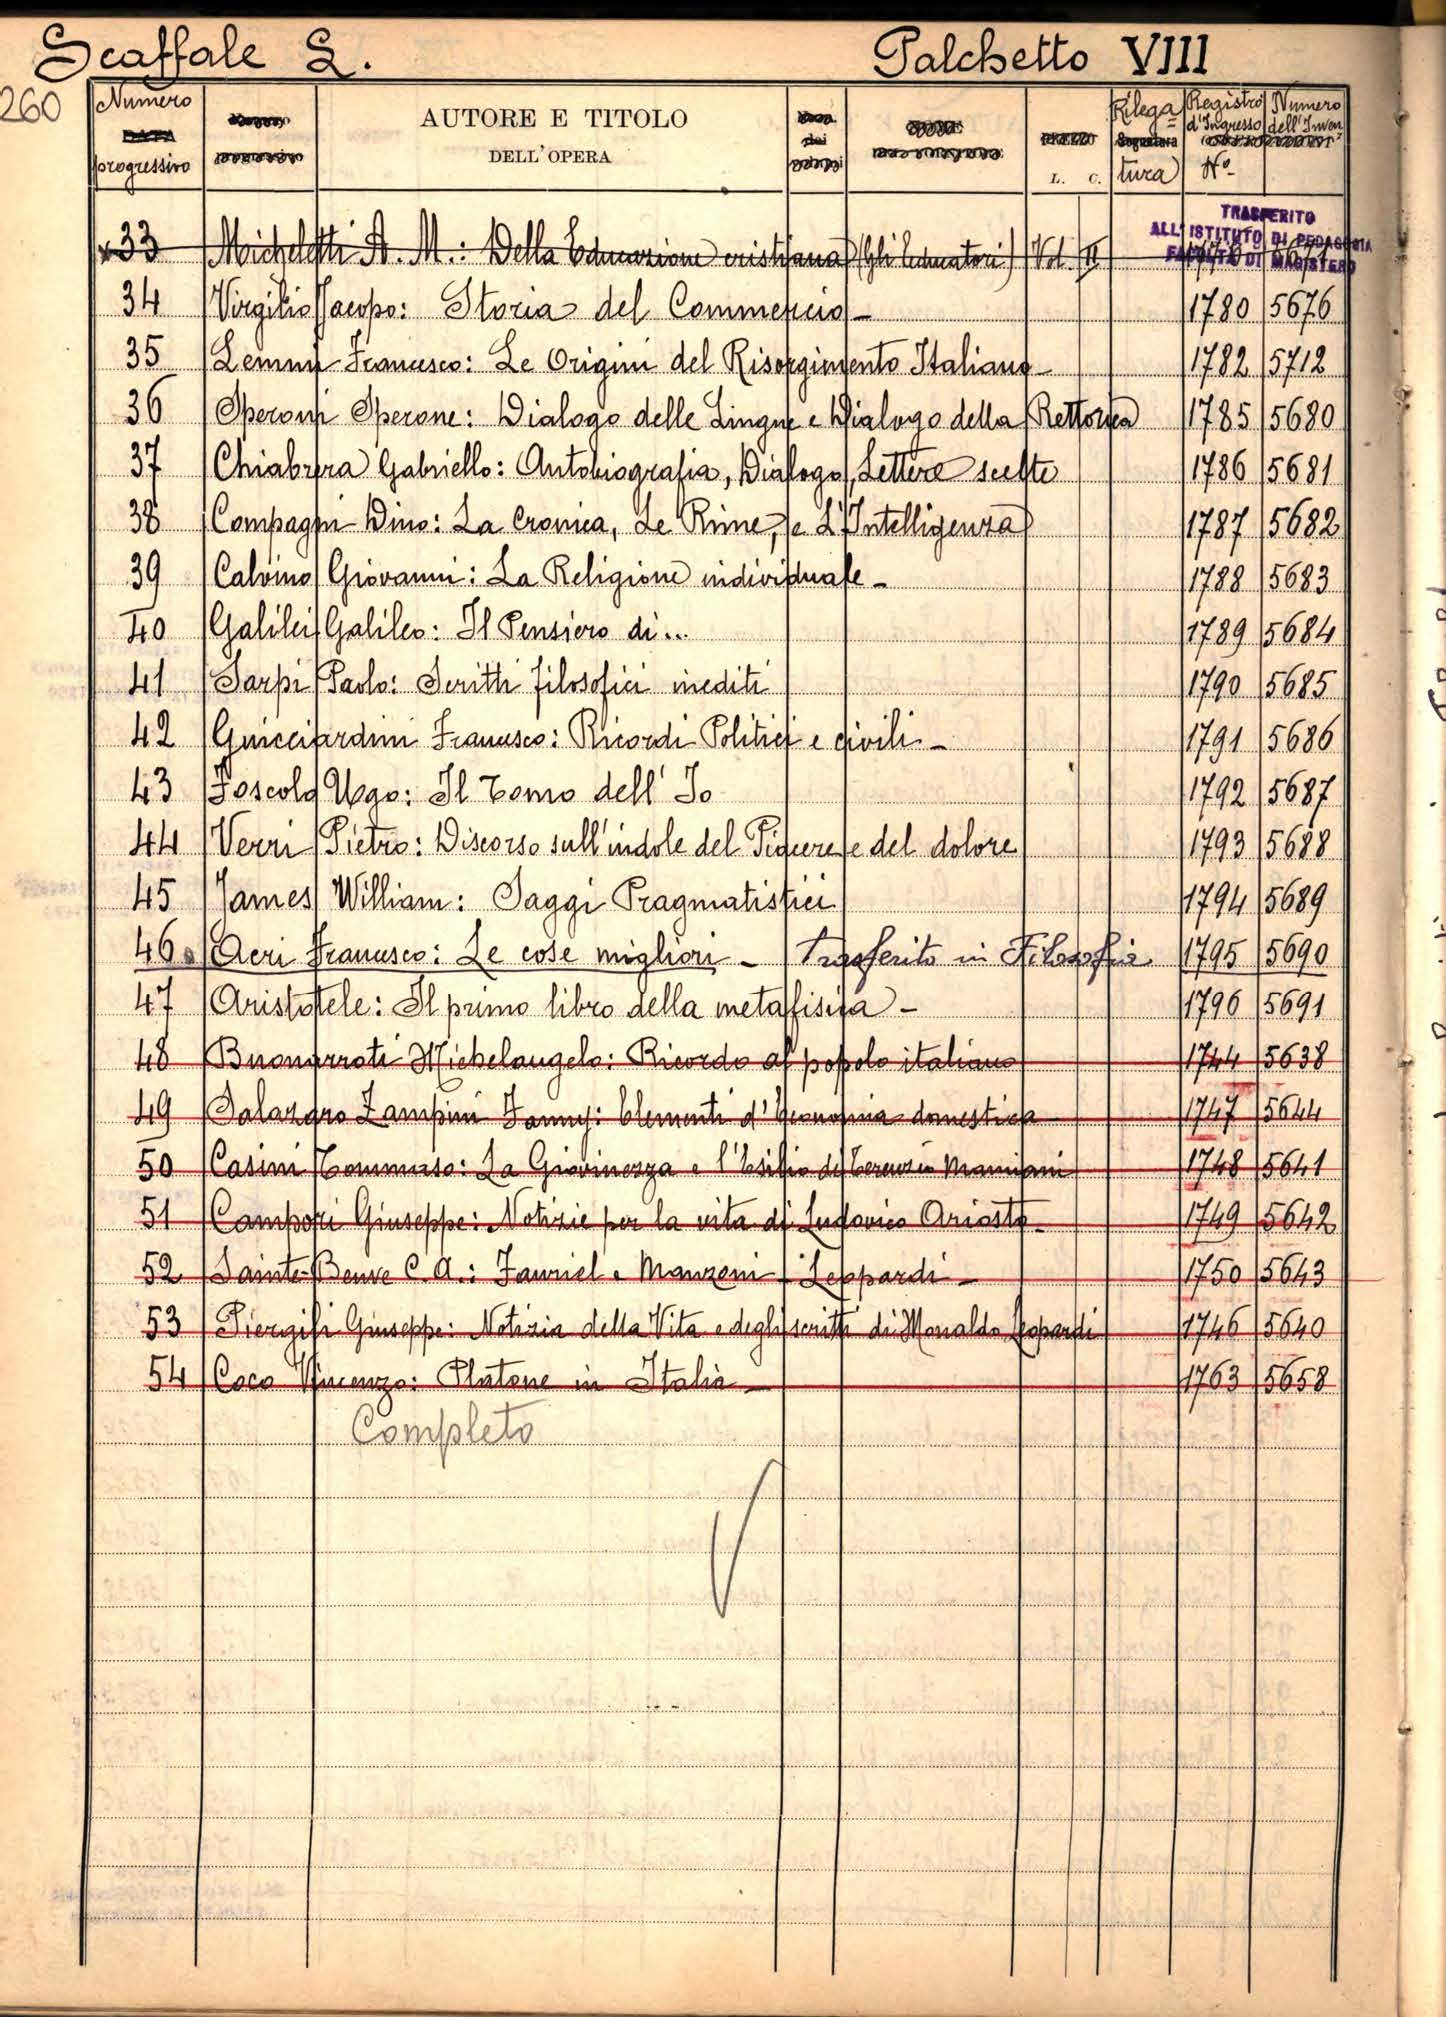 Scaffale L. Palchetto VIII
260
Numero progressivo AUTORE E TITOLO DELL'OPERA L. C. Rilega=tura Registro d'Ingresso N.º Numero dell'Inven.º
TRASFERITO
ALL'ISTITUTO DI PEDAGOGIA
FACOLTÀ DI MAGISTERO
x33 Micheletti A. M.: Della Educazione cristiana (Gli Educatori) Vol. II
34 Virgilio Jacopo: Storia del Commercio - 1780 5676
35 Lemmi Francesco: Le Origini del Risorgimento Italiano - 1782 5712
36 Speroni Sperone: Dialogo delle Lingue e Dialogo della Rettorica 1785 5680
37 Chiabrera Gabriello: Autobiografia, Dialogo, Lettere scelte 1786 5681
38 Compagni Dino: La Cronica, Le Rime, e L'Intelligenza 1787 5682
39 Calvino Giovanni: La Religione individuale - 1788 5683
40 Galilei Galileo: Il Pensiero di... 1789 5684
41 Sarpi Paolo: Scritti filosofici inediti 1790 5685
42 Guicciardini Francesco: Ricordi Politici e civili - 1791 5686
43 Foscolo Ugo: Il Tomo dell' Io 1792 5687
44 Verri Pietro: Discorso sull'indole del Piacere e del dolore 1793 5688
45 James William: Saggi Pragmatistici 1794 5689
46 Acri Francesco: Le cose migliori - trasferito in Filosofia 1795 5690
47 Aristotele: Il primo libro della metafisica - 1796 5691
48 Buonarroti Michelangelo: Ricordo al popolo italiano 1744 5638
49 Salazaro Zampini Fanny: Elementi d'Economia domestica 1747 5644
50 Casini Tommaso: La Giovinezza e l'Esilio di Terenzio Mamiani 1748 5641
51 Campori Giuseppe: Notizie per la vita di Ludovico Ariosto - 1749 5642
52 Sainte-Beuve C. A.: Fauriel e Manzoni - Leopardi - 1750 5643
53 Piergili Giuseppe: Notizia della Vita e degli scritti di Monaldo Leopardi 1746 5640
54 Coco Vincenzo: Platone in Italia - 1763 5658
Completo